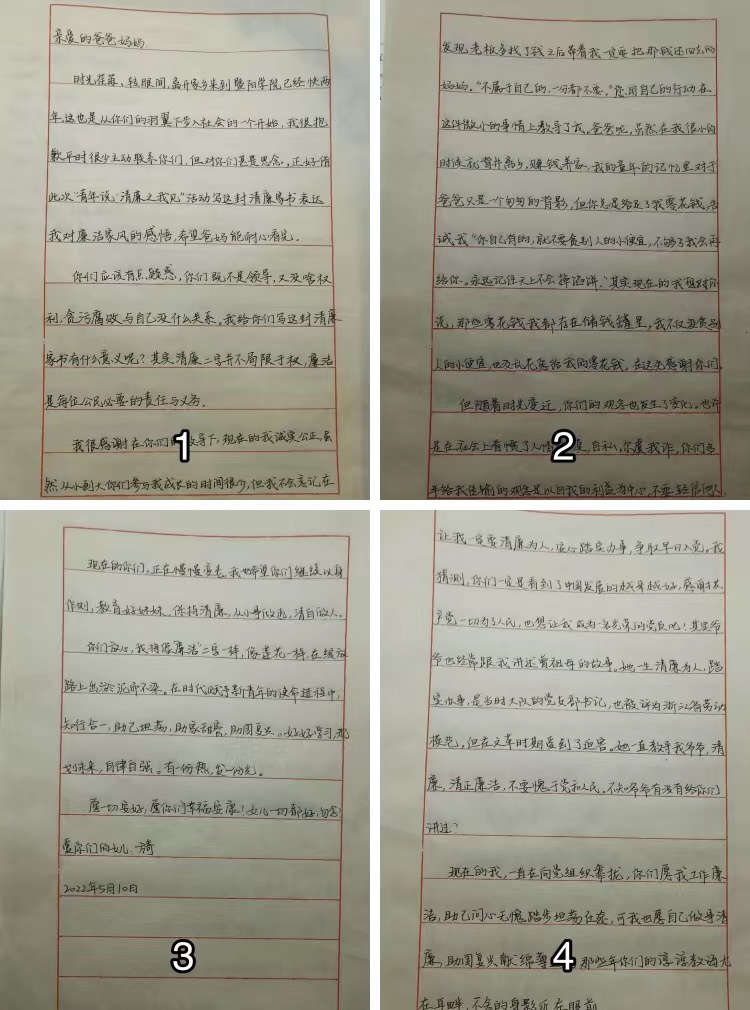 亲爱的爸爸妈妈:
时光荏苒,转眼间,离开家乡来到暨阳学院已经快两
年,这也是从你们的羽翼下步入社会的一个开始,我很抱
歉平时很少主动联系你们,但对你们甚是思念,正好借
此次“青年说‘清廉之我见’”活动写这封清廉家书表达
我对廉洁家风的感悟,希望爸妈能耐心看完。
你们应该有点疑惑,你们既不是领导,又没啥权
利,贪污腐败与自己没什么关系。我给你们写这封清廉
家书有什么意义呢?其实清廉二字并不局限于权,廉洁
是每位公民必要的责任与义务。
我很感谢在你们的教导下,现在的我诚实公正,虽
然从小到大你们参与我成长的时间很少,但我不会忘记在
1
发现老板多找了钱之后带着我一定要把那钱还回去的
妈妈。“不属于自己的,一分都不要。”您用自己的行动在
这件微小的事情上教导了我。爸爸呢,虽然在我很小的
时候就背井离乡,赚钱养家,我的童年的记忆里对于
爸爸只是一个匆匆的背影,但你总是给足了我零花钱,告
诫我“你自己有的,就不要贪别人的小便宜,不够了我会再
给你。永远记住天上不会掉馅饼。”其实现在的我想对你
说,那些零花钱我都存在储钱罐里,我不仅没贪别
人的小便宜,也没乱花您给我的零花钱。在这先感谢你们。
但随着时光变迁,你们的观念也发生了变化。也许
是在社会上看惯了人情,自私,尔虞我诈,你们多
年给我传输的观念是以自我的利益为中心,不要轻信他人,
2
现在的你们,正在慢慢变老,我也希望你们继续以身
作则,教育好妹妹,保持清廉,从小事做起,清白做人。
你们放心,我将像“廉洁”二字一样,像莲花一样,在
路上出淤泥而不染。在时代赋予新青年的使命进程中,
知行合一,助己坦荡,助家甜蜜,助国复兴。好好学习,规
划未来,自律自强。有一份热,发一份光。
愿一切安好,愿你们幸福安康!女儿一切都好,勿念!
爱你们的女儿:旖
2022年5月10日
3
让我一定要清廉为人,安心踏实办事,争取早日入党。我
猜测,你们一定是看到了中国发展的越来越好,感谢共
产党一切为了人民,也想让我成为一名光荣的党员吧!其实爷
爷也经常跟我讲述曾祖母的故事。她一生清廉为人,踏
实办事,是当时大队的党支部书记,也被评为浙江省劳动
模范,但在文革时期遭到了迫害。她一直教导我爷爷,清
廉,清正廉洁,不要愧于党和人民。不知爷爷有没有给你们
讲过?
现在的我,一直在向党组织靠拢,你们愿我工作廉
洁,助己问心无愧,踏步坦荡在途,可我也愿自己做导清
廉,助国复兴献绵薄那些年你们的谆谆教诲尤
在耳畔,不舍的身影近在眼前
4